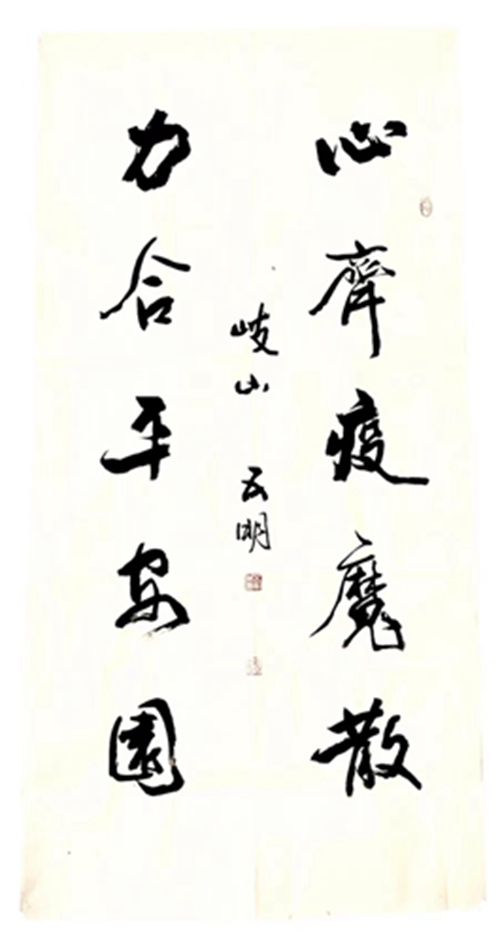 心齊疫魔散
力合平安園
岐山 云明